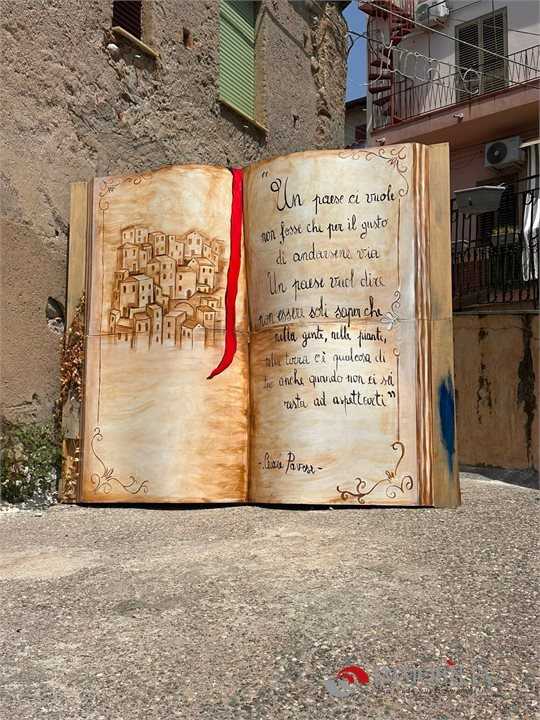 "Un paese ci vuole
non fosse che per il gusto
di andarsene via
Un paese vuol dire
non essere soli saper che
nella gente, nelle piante,
nella terra c'è qualcosa di
tuo anche quando non ci sei
resta ad aspettarti"
-Cesare Pavese-